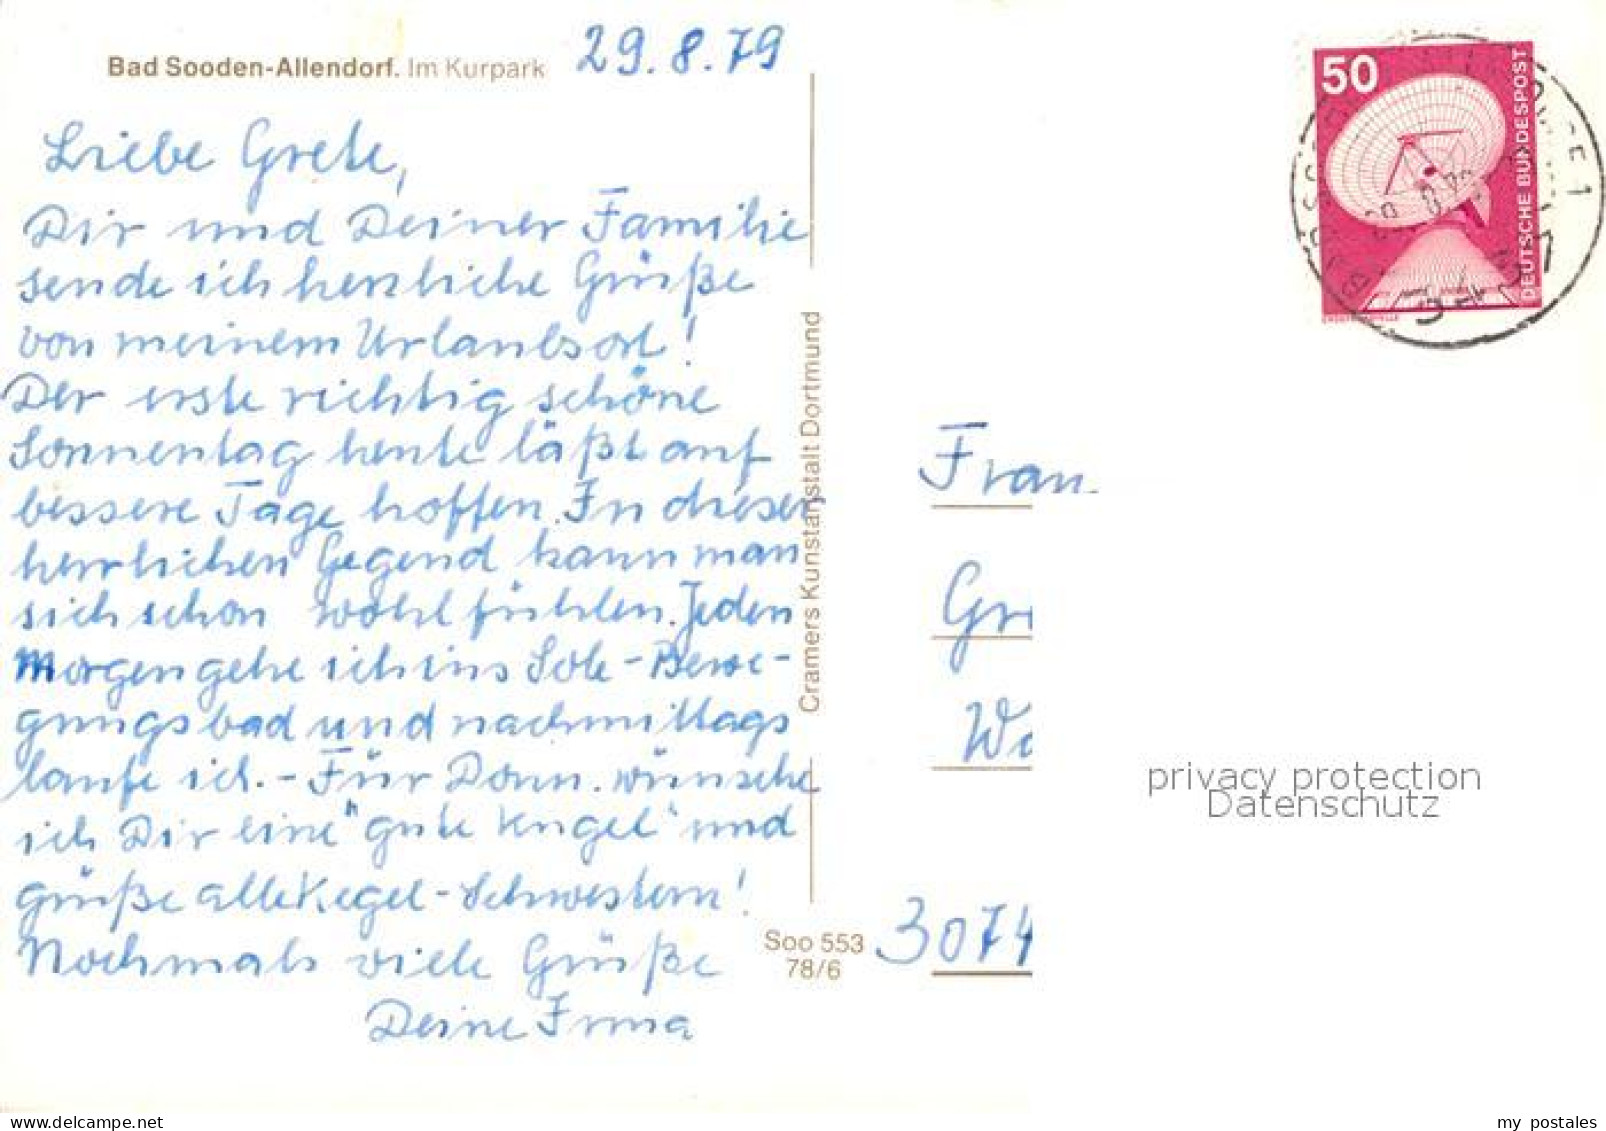 Bad Sooden-Allendorf. Im Kurpark
29.8.79
Liebe Grete,
Dir und Deiner Familie
sende ich herzliche Grüße
von meinem Urlaubsort!
Der erste richtig schöne
Sonnentag heute läßt auf
bessere Tage hoffen. In dieser
herrlichen Gegend kann man
sich schon wohl fühlen. Jeden
Morgen gehe ich ins Sole-Bewe-
gungsbad und nachmittags
laufe ich. - Für Donn. wünsche
ich Dir eine "gute Kugel" und
grüße alle Kegel-Schwestern!
Nochmals viele Grüße
Deine Irma
Cramers Kunstanstalt Dortmund
Soo 553
78/6
50
DEUTSCHE BUNDESPOST
Frau
Gr
Wo
3074
privacy protection
Datenschutz
my postales